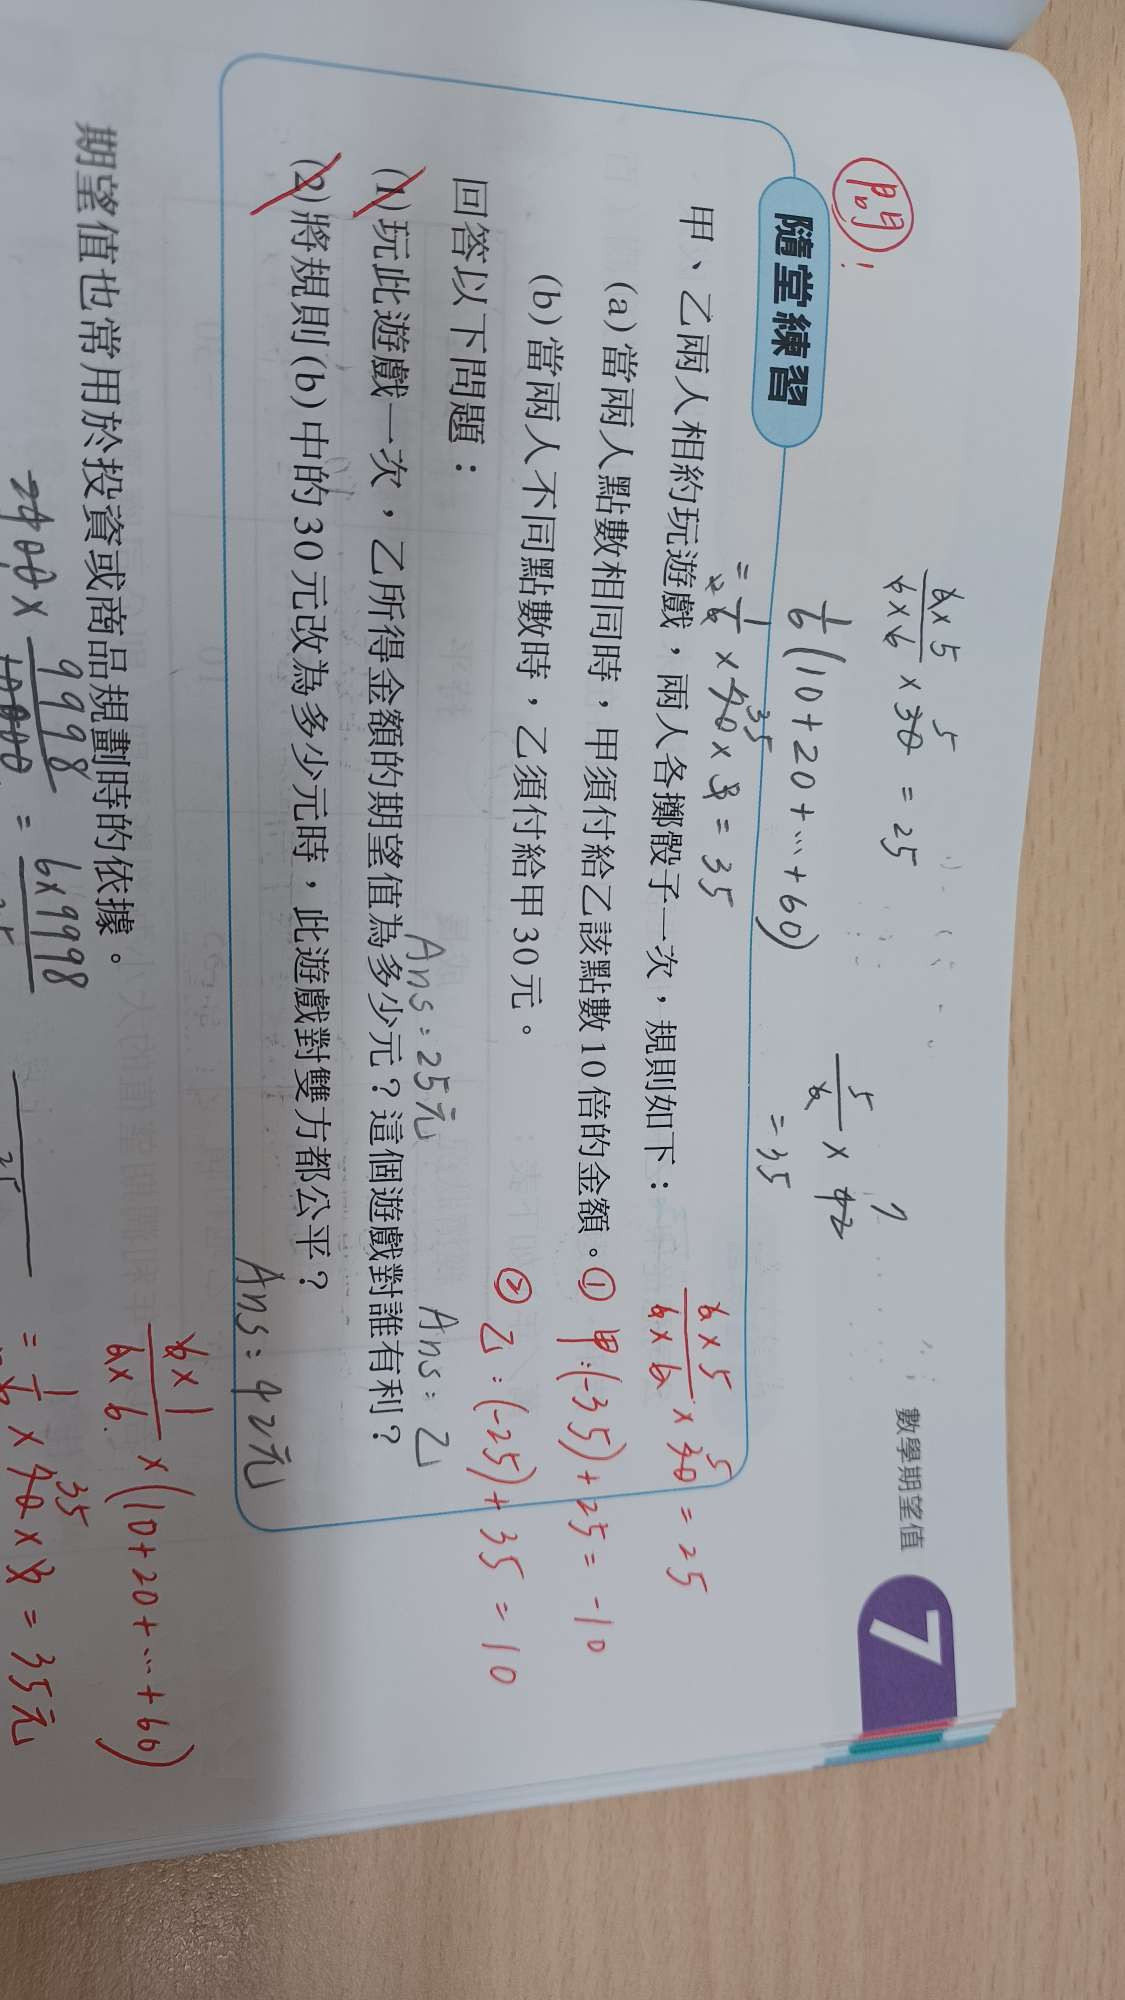 數學期望值 7
問!
6×5/6×6 × 30 5 = 25
5/6 × 42 7
1/6(10+20+…+60)
= 35
= 1/6 × 70 35 × 3 = 35
隨堂練習
甲、乙兩人相約玩遊戲，兩人各擲骰子一次，規則如下：
6×5/6×6 × 30 5 = 25
(a)當兩人點數相同時，甲須付給乙該點數10倍的金額。
① 甲:(-35)+25=-10
(b)當兩人不同點數時，乙須付給甲30元。
② 乙:(-25)+35=10
回答以下問題：
Ans:25元 Ans:乙
(1)玩此遊戲一次，乙所得金額的期望值為多少元？這個遊戲對誰有利？
(2)將規則(b)中的30元改為多少元時，此遊戲對雙方都公平？
Ans:42元
6×1/6×6 × (10+20+…+60)
期望值也常用於投資或商品規劃時的依據。
= 1/6 × 70 35 × 3 = 35元
× 9998/10000 = 6×9998/25